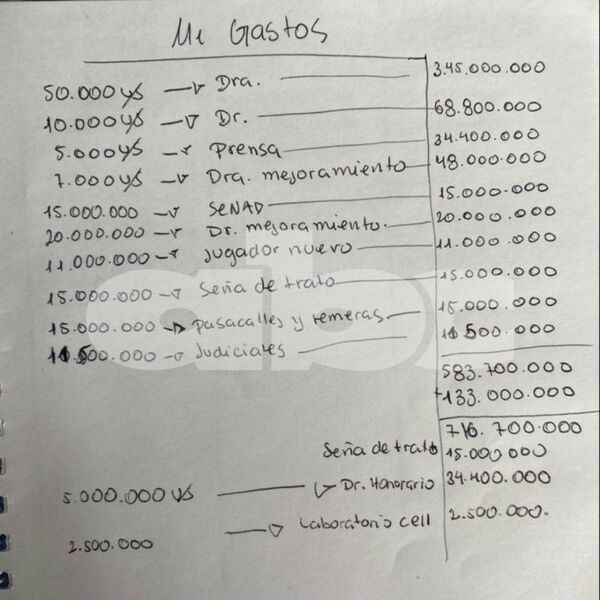 Mi Gastos
50.000 U$ → Dra. 3.45.000.000
10.000 U$ → Dr. 68.800.000
5.000 U$ → Prensa 34.400.000
7.000 U$ → Dra. mejoramiento 48.000.000
15.000.000 → SENAD 15.000.000
20.000.000 → Dr. mejoramiento. 20.000.000
11.000.000 → jugador nuevo 11.000.000
15.000.000 → Seña de trato 15.000.000
15.000.000 → pasacalles y remeras 15.000.000
11.500.000 → Judiciales 11.500.000
583.700.000
+133.000.000
716.700.000
Seña de trato 15.000.000
5.000.000 U$ → Dr. Honorario 34.400.000
2.500.000 → Laboratorio cell 2.500.000.
abc